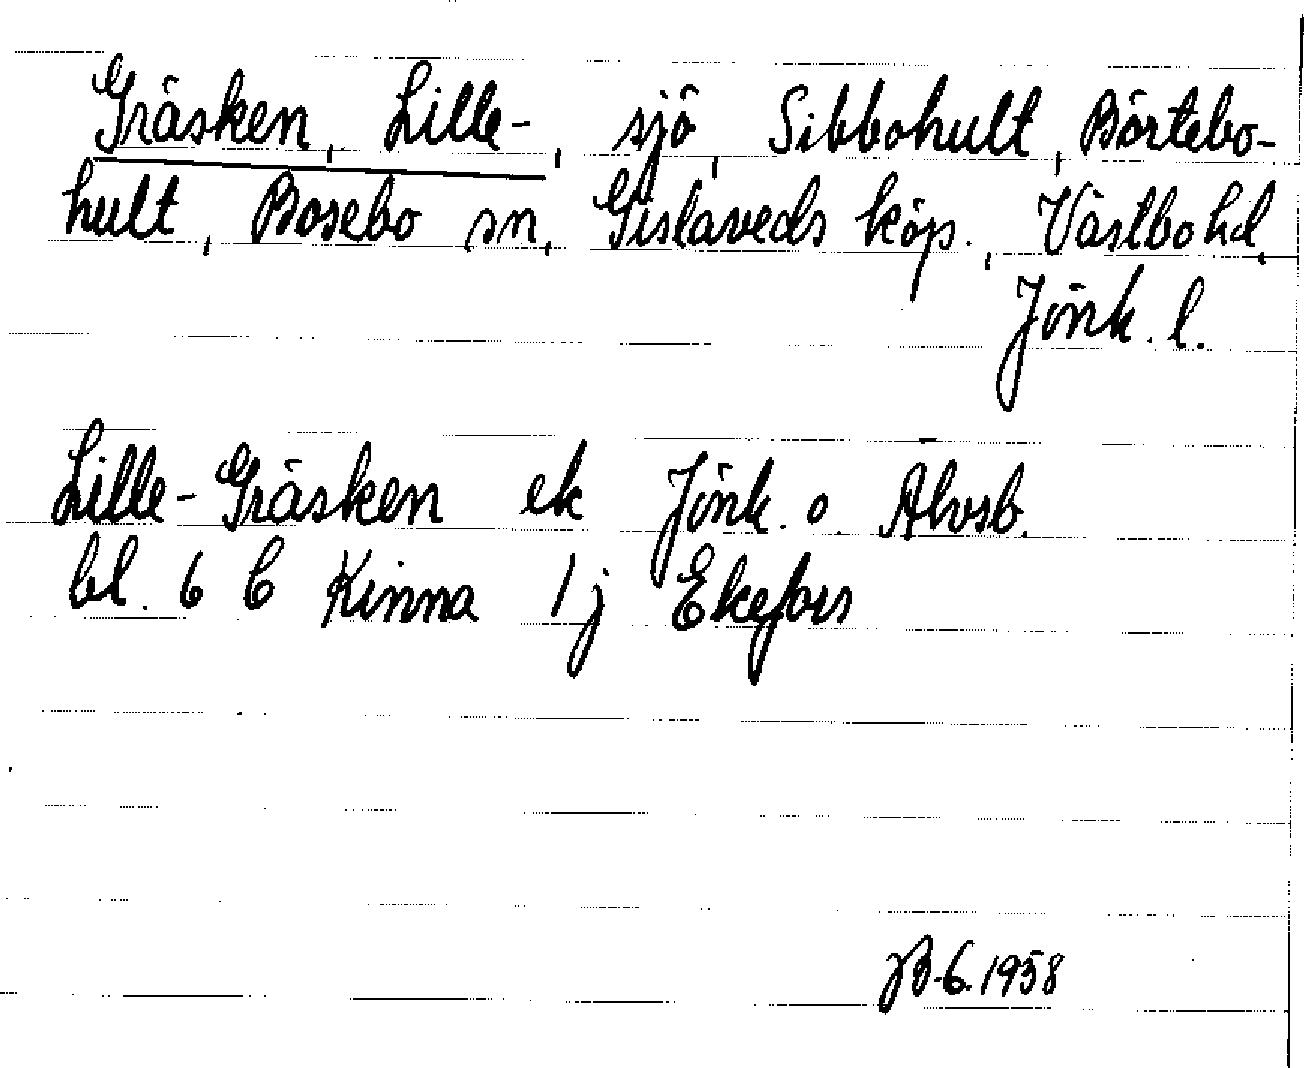 Gräsken, Lille-, sjö, Sibbohult, Börtebo-
hult, Bosebo sn, Gislaveds köp., Västbo hd,
Jönk. l.
Lille-Gräsken ek Jönk. o. Älvsb.
bl. 6 C Kinna 1j Ekefors
JB. 6. 1958